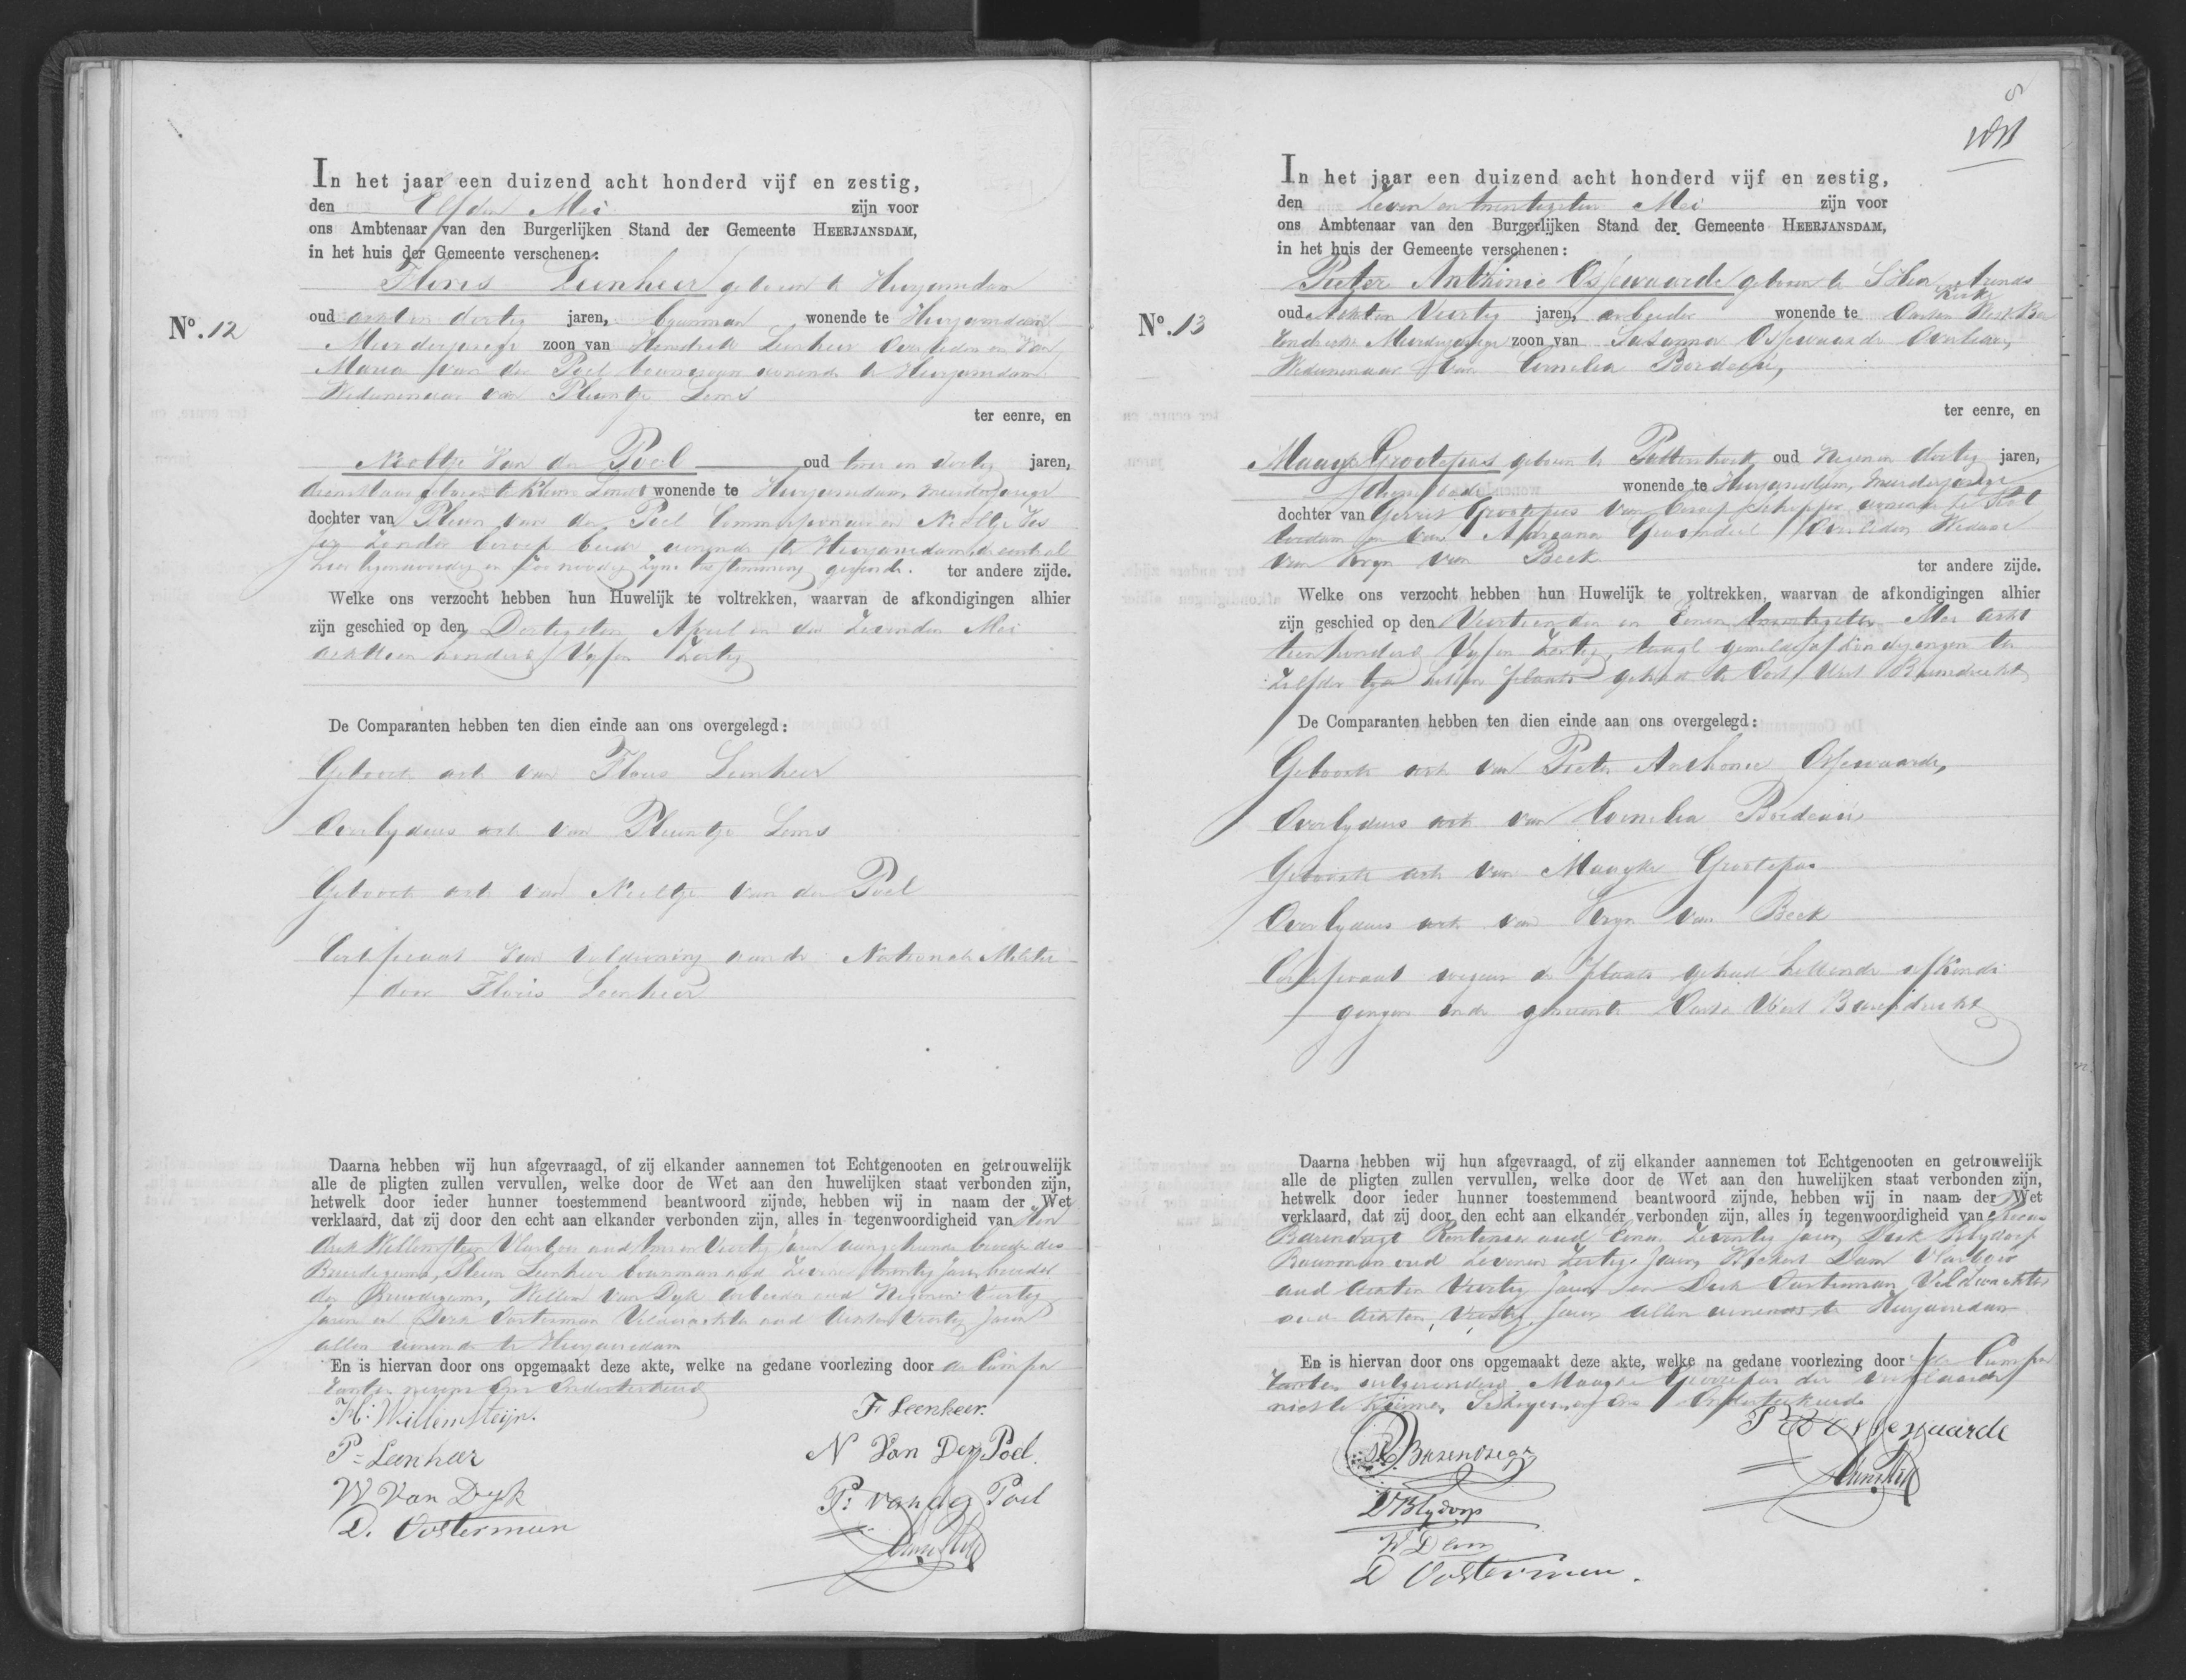 No. 12
In het jaar een duizend acht honderd vijf en zestig,
den Elfden Mei zijn voor
ons Ambtenaar van den Burgerlijken Stand der Gemeente HEERJANSDAM,
in het huis der Gemeente verschenen:
Floris Leenheer geboren te Heerjansdam
oud acht en dertig jaren, bouwman wonende te Heerjansdam
Meerderjarige zoon van Hendrik Leenheer Overleden en Van
Maria van der Poel bouwvrouw wonende te Heerjansdam
Weduwenaar van Pleuntje Lems
ter eenre, en
Neeltje Van der Poel oud twee en dertig jaren,
geboren te wonende te Heerjansdam, meerderjarige
dochter van Pleun van der Poel Commissionair en Neeltje
zonder beroep beide wonende te Heerjansdam
ter andere zijde.
Welke ons verzocht hebben hun Huwelijk te voltrekken, waarvan de afkondigingen alhier
zijn geschied op den Dertigsten April en den Zevenden Mei
achttien honderd Vyf en Zestig
De Comparanten hebben ten dien einde aan ons overgelegd:
Geboorte acte van Floris Leenheer
Overlydens acte van Pleuntje Lems
Geboorte acte van Neeltje van der Poel
Certificaat Van voldoening aan de Nationale Militie
door Floris Leenheer
Daarna hebben wij hun afgevraagd, of zij elkander aannemen tot Echtgenooten en getrouwelijk
alle de pligten zullen vervullen, welke door de Wet aan den huwelijken staat verbonden zijn,
hetwelk door ieder hunner toestemmend beantwoord zijnde, hebben wij in naam der Wet
verklaard, dat zij door den echt aan elkander verbonden zijn, alles in tegenwoordigheid van
Willemsteijn Vlasboer oud Twee en Veertig Jaren aangehuwde broeder des
Bruidegoms, Pleun Leenheer bouwman oud Zeven en twintig Jaren broeder
des Bruidegoms, Willem Van Dyk Arbeider oud Negen en Veertig
Jaren en Dirk Oosterman Veldwachter oud Acht en Veertig Jaren
allen wonende te Heerjansdam
En is hiervan door ons opgemaakt deze akte, welke na gedane voorlezing door de Compa
ranten nevens Ons Onderteekend
H. Willemsteijn. F Leenheer.
P= Leenheer N Van Der Poel.
W Van Dyk P: van der Poel
D. Oosterman
8
No. 13
In het jaar een duizend acht honderd vijf en zestig,
den Zeven en twintigsten Mei zijn voor
ons Ambtenaar van den Burgerlijken Stand der Gemeente HEERJANSDAM,
in het huis der Gemeente verschenen:
Pieter Anthonie Ossewaarde geboren te S Heer Arends
Kerke
oud Acht en Veertig jaren, arbeider wonende te Oost en West Ba
rendrecht Meerderjarige zoon van Susanna Ossewaarde Overleden,
Weduwenaar Van Cornelia Bordeau,
ter eenre, en
Maayke Grootepas geboren te Puttershoek oud Negen en dertig jaren,
wonende te Heerjansdam, Meerderjarige
dochter van Gerrit Grootepas Van beroep Schipper wonende te Rot
terdam en van Adriana Overleden Weduwe
van Kryn van Beek
ter andere zijde.
Welke ons verzocht hebben hun Huwelijk te voltrekken, waarvan de afkondigingen alhier
zijn geschied op den Veertienden en Eenen twintigsten Mei acht
tien honderd Vyf en Zestig, terwyl gemelde afkondigingen ten
Zelfden tyd hebben plaats gehad te Oost en West Barendrecht
De Comparanten hebben ten dien einde aan ons overgelegd:
Geboorte acte van Pieter Anthonie Ossewaarde,
Overlydens acte van Cornelia Bordeau
Geboorte acte van Maayke Grootepas
Overlydens acte van Kryn van Beek
Certificaat wegens de plaats gehad hebbende afkondi
gingen in de gemeente Oost en West Barendrecht
Daarna hebben wij hun afgevraagd, of zij elkander aannemen tot Echtgenooten en getrouwelijk
alle de pligten zullen vervullen, welke door de Wet aan den huwelijken staat verbonden zijn,
hetwelk door ieder hunner toestemmend beantwoord zijnde, hebben wij in naam der Wet
verklaard, dat zij door den echt aan elkander verbonden zijn, alles in tegenwoordigheid van
Barendregt Rentenier oud Eenen Zeventig Jaren, Dirk Blydorp
Bouwman oud Zeven en Zestig Jaren, Dam Vlasboer
oud Acht en Veertig Jaren en Dirk Oosterman Veldwachter
oud Acht en Veertig Jaren allen wonende te Heerjansdam
En is hiervan door ons opgemaakt deze akte, welke na gedane voorlezing door de Compa
ranten uitgezonderd Maayke Grootepas die verklaarde
niet te kunnen Schryven, en Ons Onderteekend
Barendregt P A Ossewaarde
D Blydorp
W Dam
D Oosterman.